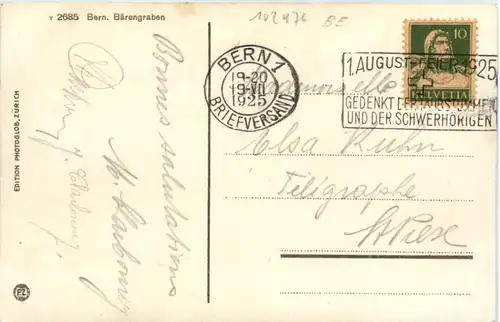 Y 2685 Bern. Bärengraben
102476 BE
10
HELVETIA
BERN 1
19-20
19.VII
1925
BRIEFVERSAND
1. AUGUST-FEIER 1925
GEDENKT DER TAUBSTUMMEN
UND DER SCHWERHÖRIGEN
Mademoiselle
Elsa Kuhn
Bonnes salutations
EDITION PHOTOGLOB, ZÜRICH
PZ